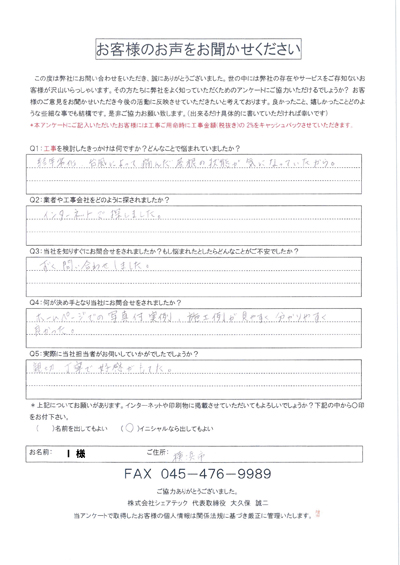 お客様のお声をお聞かせください
この度は弊社にお問い合わせをいただき、誠にありがとうございました。世の中には弊社の存在やサービスをご存知ないお
客様が沢山いらっしゃいます。その方たちに弊社をよく知っていただくためのアンケートにご協力いただけるでしょうか？お客
様のご意見をお聞かせいただき今後の活動に反映させていただきたいと考えております。良かったこと、嬉しかったことどのよ
うな些細な事でも結構です。是非ご協力お願い致します。（出来るだけ具体的に書いていただければ幸いです）
*本アンケートにご記入いただいたお客様には工事ご用命時に工事金額（税抜き）の2%をキャッシュバックさせていただきます。
Q1:工事を検討したきっかけは何ですか？どんなことで悩まれていましたか？
台風によって傷んだ屋根の状態が気になっていたから。
Q2:業者や工事会社をどのように探されましたか？
インターネットで探しました。
Q3:当社を知りすぐにお問合せをされましたか？もし悩まれたとしたらどんなことがご不安でしたか？
すぐ問い合わせしました。
Q4:何が決め手となり当社にお問合せをされましたか？
ホームページでの写真付実例、施工例が見やすく分かりやすく
良かった。
Q5:実際に当社担当者がお伺いしていかがでしたでしょうか？
親切丁寧で好感がもてた。
＊上記についてお願いがあります。インターネットや印刷物に掲載させていただいてもよろしいでしょうか？下記の中から〇印
をお付下さい。
（　）名前を出してもよい （〇）イニシャルなら出してもよい
お名前： I 様 ご住所：
FAX 045-476-9989
ご協力ありがとうございました。
株式会社シェアテック 代表取締役 大久保 誠二
当アンケートで取得したお客様の個人情報は関係法規に基づき厳正に管理いたします。